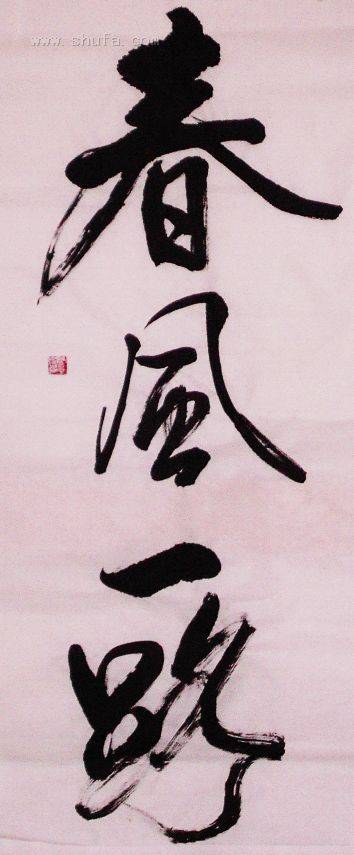 www.shufa.com
春風一路